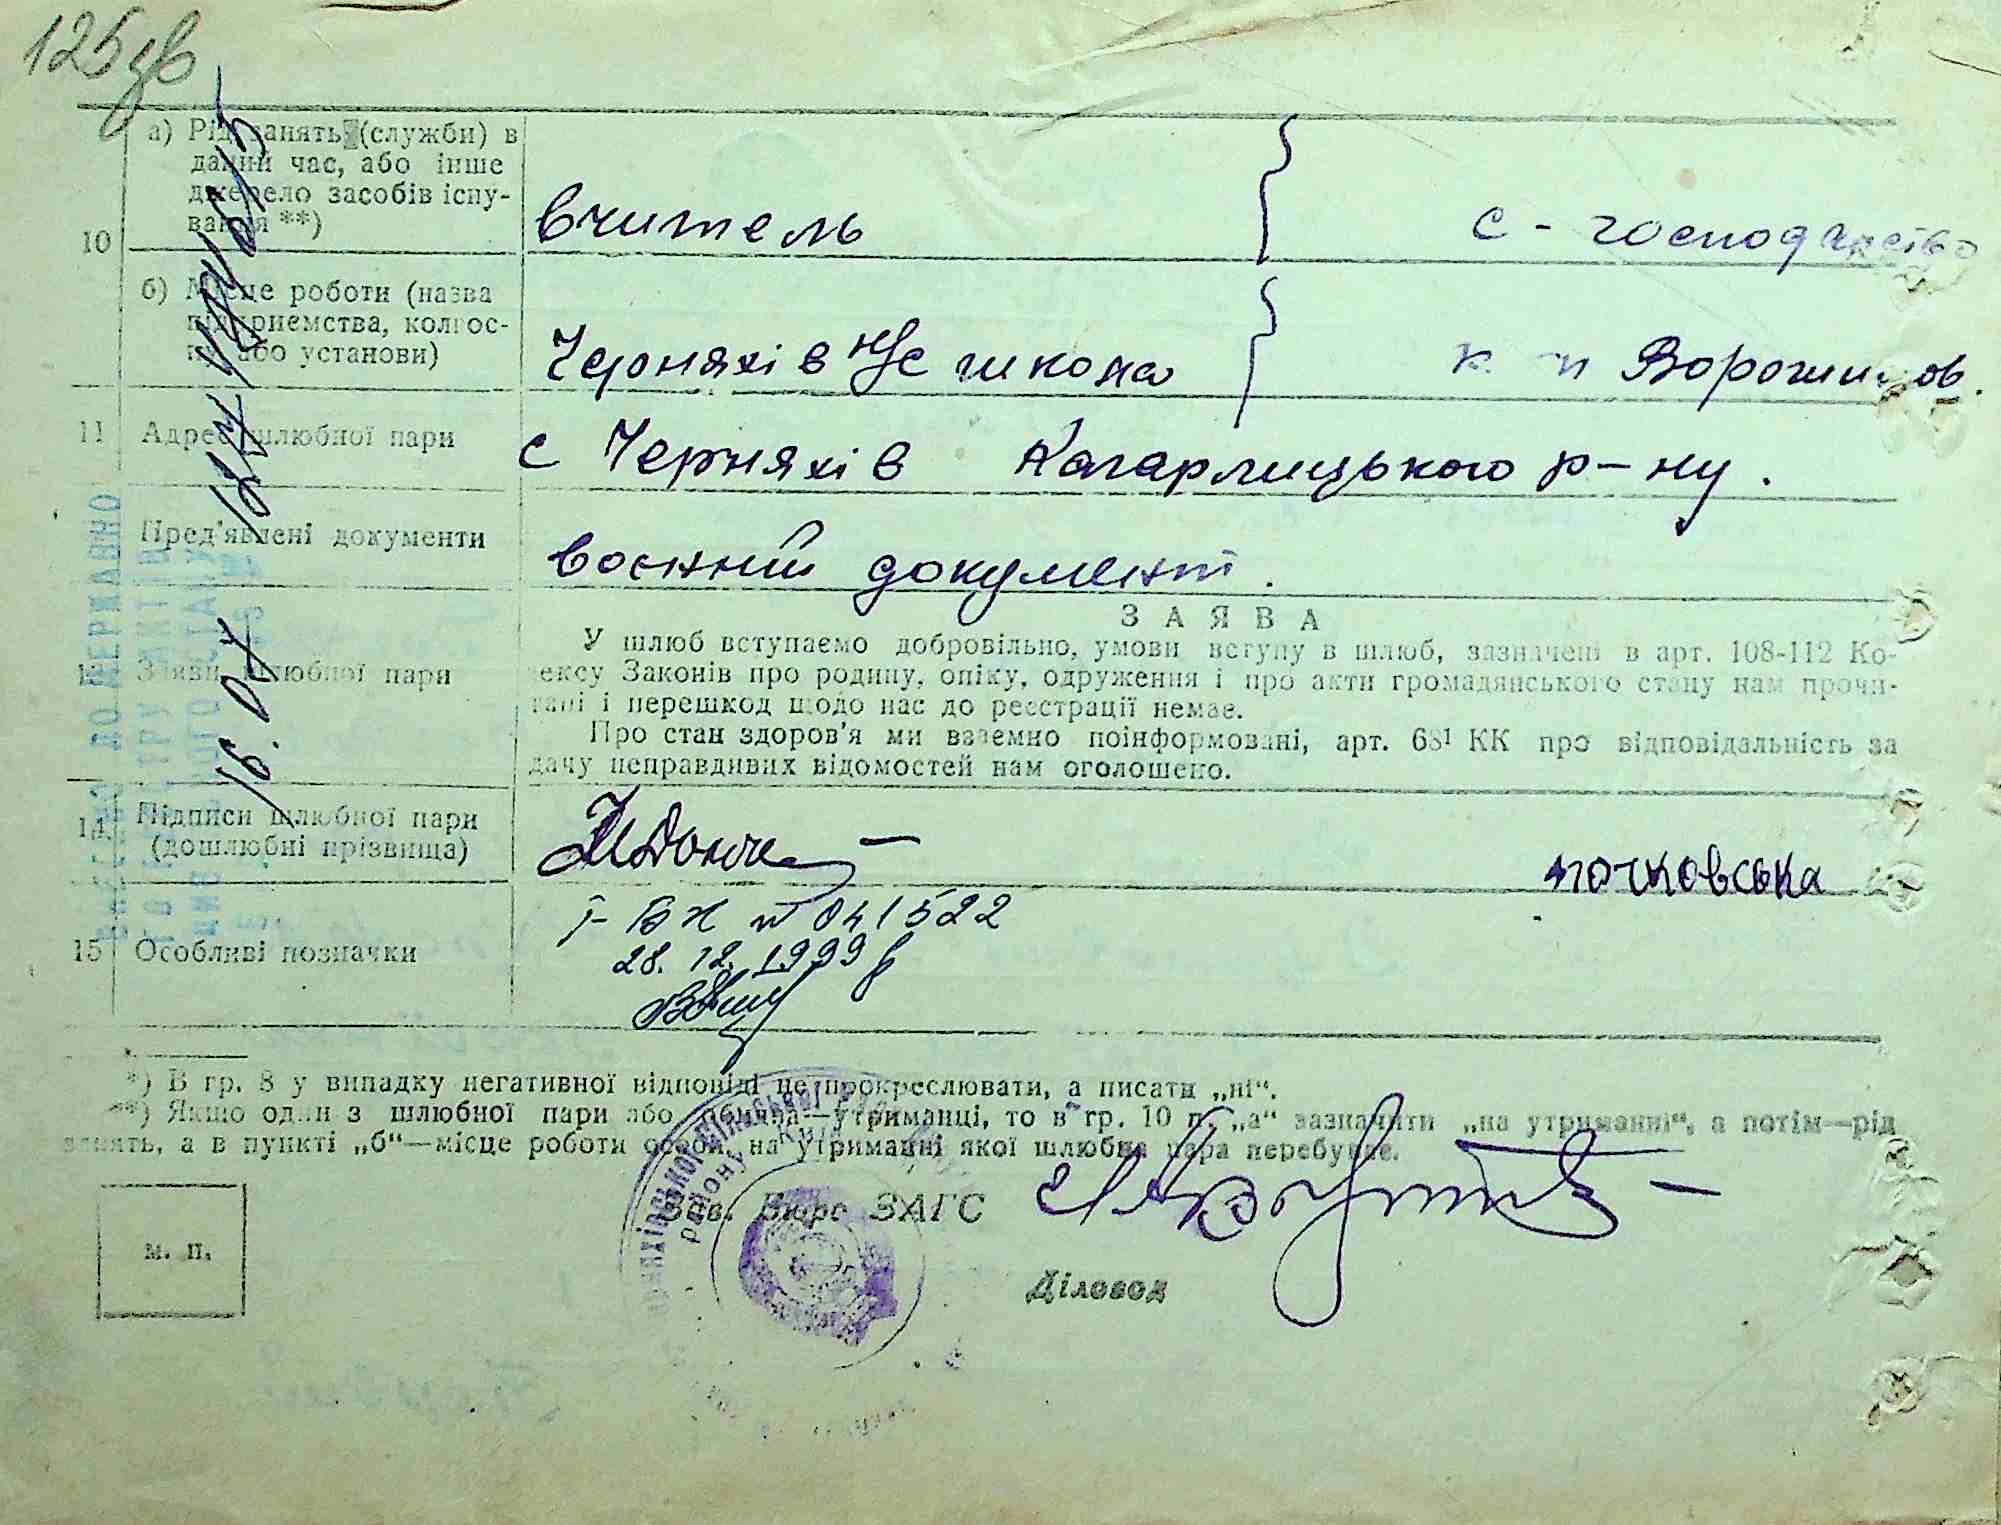 125зв
а) Рід занять (службн) в
даний час, або інше
джерело засобів існу-
вання **)
вчитель
с - господарство
10
б) Місце роботи (назва
підприємства, колгос-
пу або установи)
Черняхів НС школа
к п Ворошилов.
11 Адрес шлюбної пари
с Черняхів Кагарлицького р-ну.
Пред'явлені документи
воєнний документ.
ЗАЯВА
У шлюб вступаємо добровільно, умови вступу в шлюб, зазначені в арт. 108-112 Ко-
дексу Законів про родину, опіку, одруження і про акти громадянського стану нам прочи-
тані і перешкод щодо нас до реєстрації немає.
Заяви шлюбної пари
Про стан здоров'я ми взаємно поінформовані, арт. 68¹ КК про відповідальність за
дачу неправдивих відомостей нам оголошено.
14 Підписи шлюбної пари
(дошлюбні прізвища)
почковська
І-БК № 041522
28.12.1999 р
15 Особливі позначки
*) В гр. 8 у випадку негативної відповіді не прокреслювати, а писати „ні“.
**) Якщо один з шлюбної пари або обидва—утриманці, то в гр. 10 п. „а“ зазначити „на утриманні“, а потім—рід
занять, а в пункті „б“—місце роботи особи, на утриманні якої шлюбна пара перебуває.
Зав. Бюро ЗАГС
м. п.
Діловод